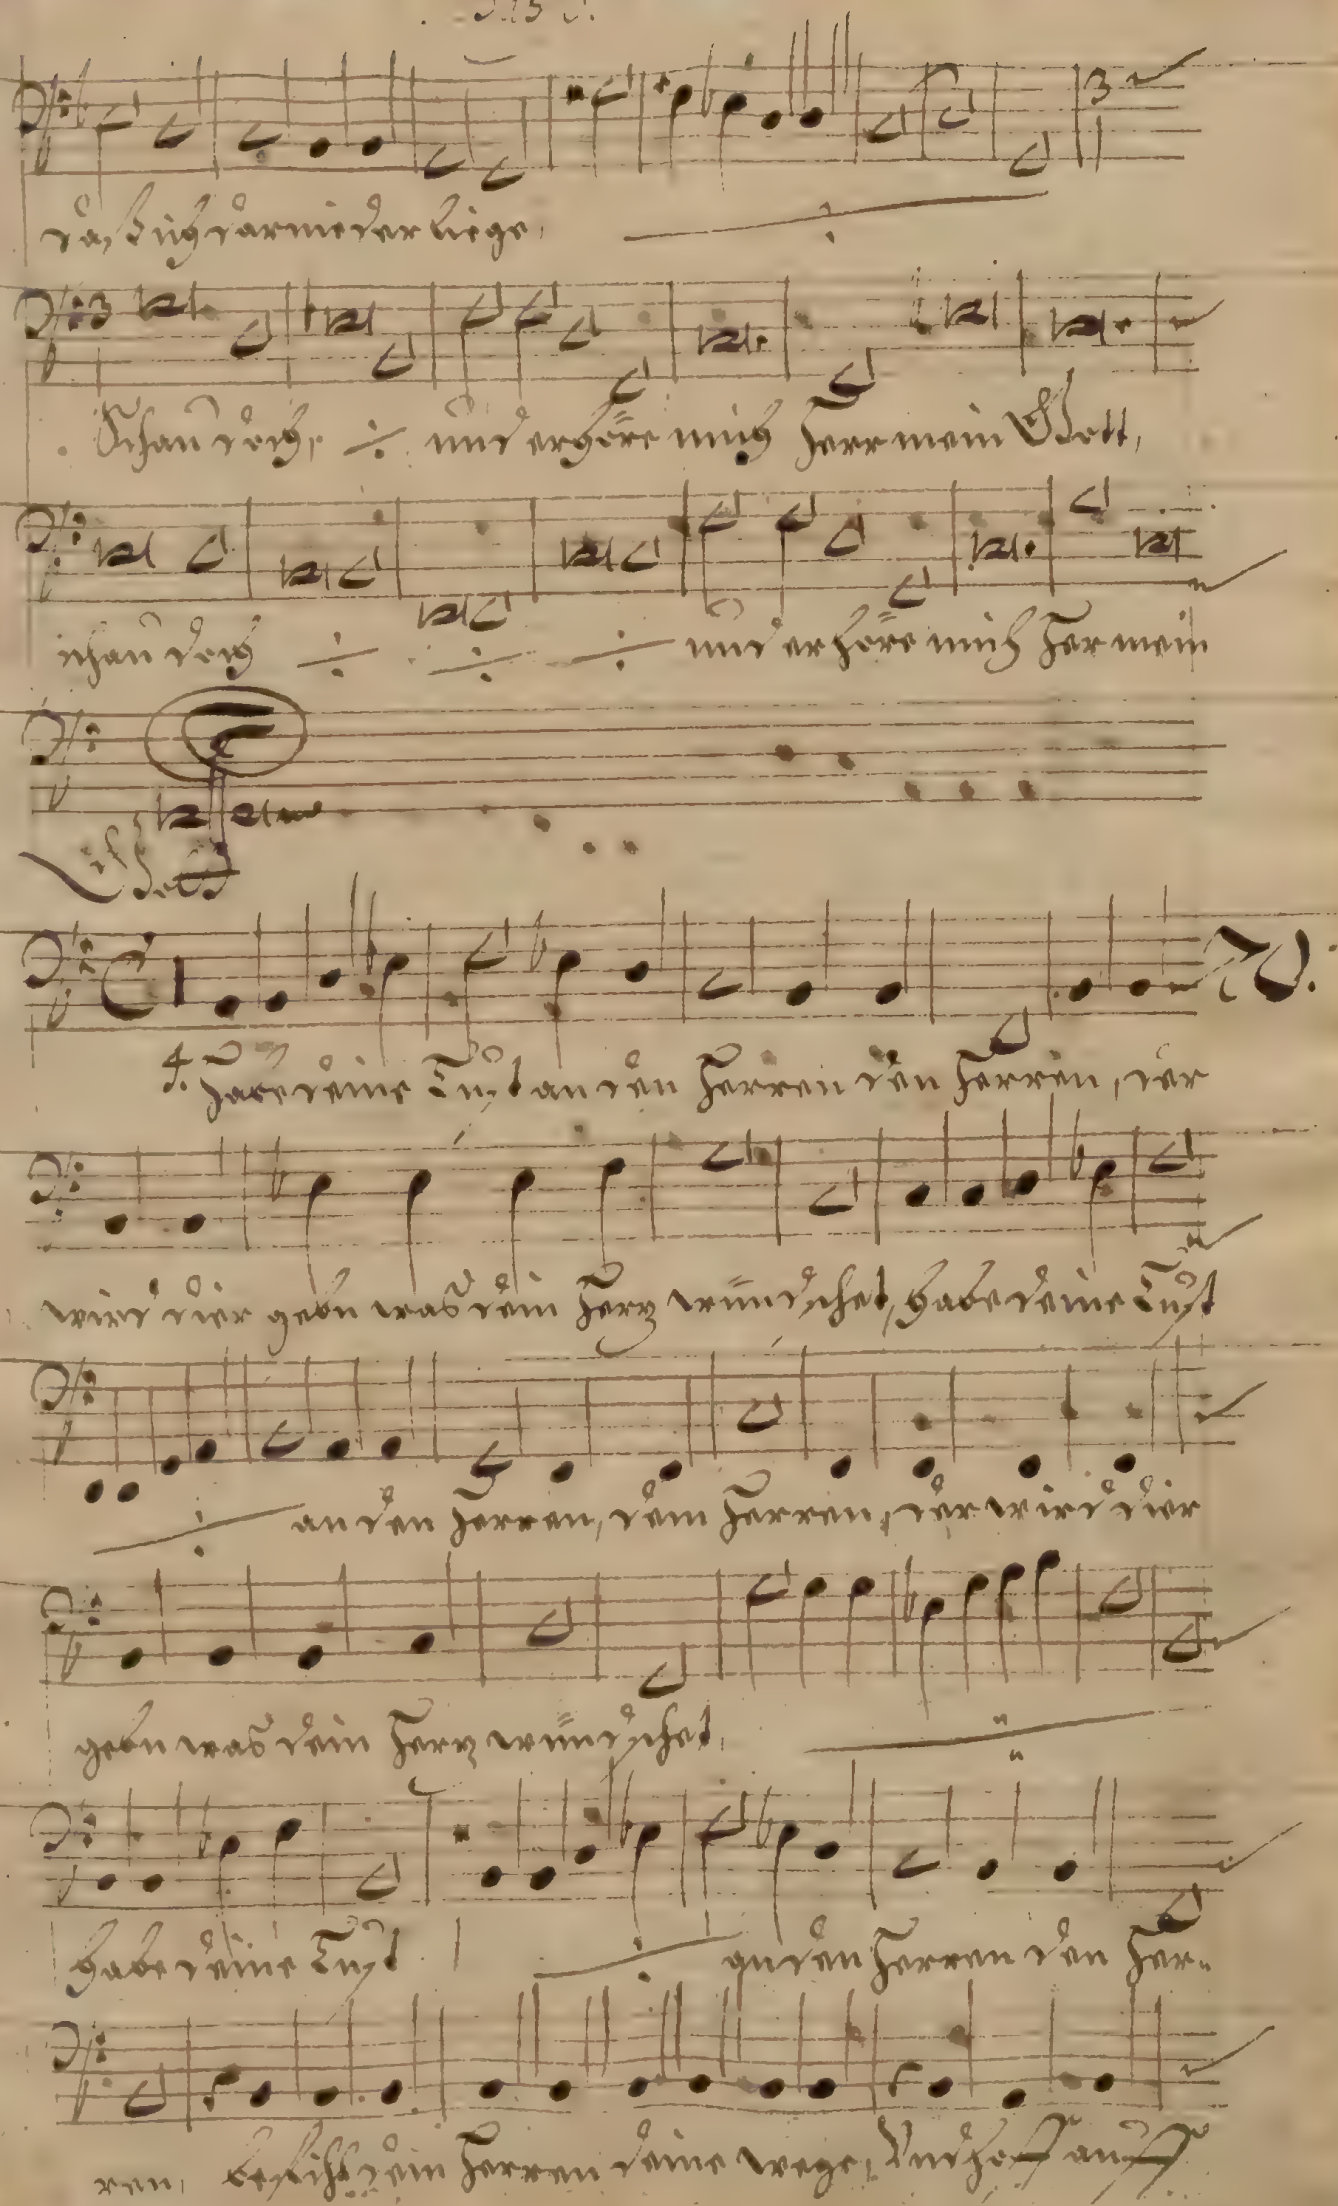 daß ich darnieder liege,
3
3
Schau doch, und erhöre mich Herr mein Gott,
schau doch und erhöre mich Her mein
Gott
4. Habe deine Lust an den Herren den Herren, der
wird dier gebn was dein Herz wündschet, habe deine Lust
an den Herren, dem Herren, der wird dier
gebn was dein Herz wündschet,
habe deine Lust an den Herren den Her-
ren, befihl dem Herren deine wege, Und hoff auff